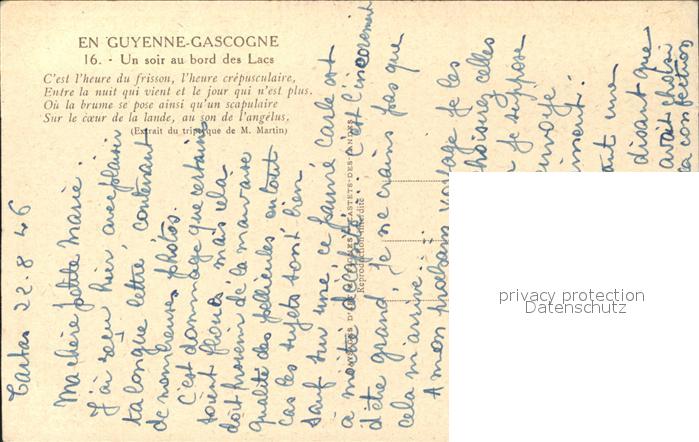 EN GUYENNE-GASCOGNE
16. - Un soir au bord des Lacs
C'est l'heure du frisson, l'heure crépusculaire,
Entre la nuit qui vient et le jour qui n'est plus.
Où la brume se pose ainsi qu'un scapulaire
Sur le cœur de la lande, au son de l'angélus.
(Extrait du triptyque de M. Martin)
Tartas 22.8.46
Ma chère petite Marie.
J'ai reçu hier, avec plaisir
ta longue lettre, contenant
de nombreuses photos.
C'est dommage que certaines
soient floues mais cela
doit provenir de la mauvaise
qualité des pellicules en tout
cas les sujets sont bien
sauf sur une ce pauvre Carle est
à moitié c'est l'inconvénient
d'être grand, je ne crains pas que
cela m'arrive.
A mon prochain voyage je les
choisirez celles
je suppose
envoyé
une
disant que
avait choisi
la confection
Reproduction interdite
privacy protection
Datenschutz